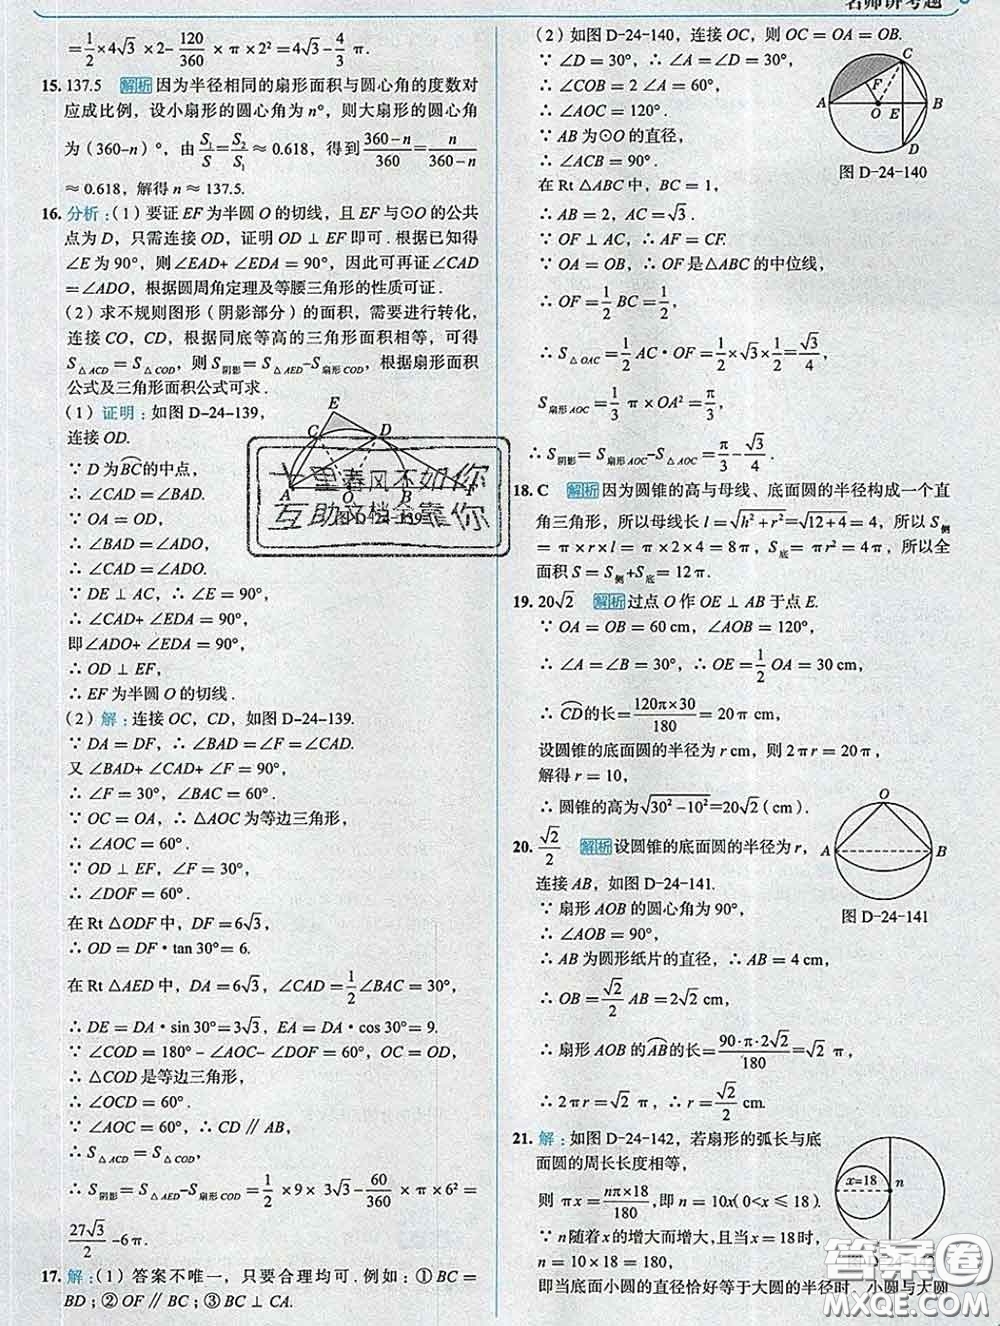 名师讲考题
=1/2×4√3×2-120/360×π×2²=4√3-4/3 π.
15. 137.5 解析 因为半径相同的扇形面积与圆心角的度数对
应成比例，设小扇形的圆心角为n°，则大扇形的圆心角
为(360-n)°，由S₁/S=S₂/S₁≈0.618，得到(360-n)/360=n/(360-n)
≈0.618，解得n≈137.5.
16. 分析：(1)要证EF为半圆O的切线，且EF与⊙O的公共
点为D，只需连接OD，证明OD⊥EF即可.根据已知得
∠E为90°，则∠EAD+∠EDA=90°，因此可再证∠CAD
=∠ADO，根据圆周角定理及等腰三角形的性质可证.
(2)求不规则图形(阴影部分)的面积，需要进行转化，
连接CO，CD，根据同底等高的三角形面积相等，可得
S△ACD=S△COD，则S阴影=S△AED-S扇形COD，根据扇形面积
公式及三角形面积公式可求.
(1)证明：如图D-24-139，
连接OD.
∵D为BC的中点，
∴∠CAD=∠BAD.
∵OA=OD，
∴∠BAD=∠ADO，
∴∠CAD=∠ADO.
∵DE⊥AC，∴∠E=90°，
∴∠CAD+∠EDA=90°，
即∠ADO+∠EDA=90°，
∴OD⊥EF，
∴EF为半圆O的切线.
(2)解：连接OC，CD，如图D-24-139.
∵DA=DF，∴∠BAD=∠F=∠CAD.
又∠BAD+∠CAD+∠F=90°，
∴∠F=30°，∠BAC=60°.
∵OC=OA，∴△AOC为等边三角形，
∴∠AOC=60°.
∵OD⊥EF，∠F=30°，
∴∠DOF=60°.
在Rt△ODF中，DF=6√3，
∴OD=DF·tan 30°=6.
在Rt△AED中，DA=6√3，∠CAD=1/2∠BAC=30°，
∴DE=DA·sin 30°=3√3，EA=DA·cos 30°=9.
∵∠COD=180°-∠AOC-∠DOF=60°，OC=OD，
∴△COD是等边三角形，
∴∠OCD=60°.
∴∠OCD=∠AOC，∴CD∥AB，
∴S△ACD=S△COD，
∴S阴影=S△AED-S扇形COD=1/2×9×3√3-60/360×π×6²=
27√3/2-6π.
17. 解：(1)答案不唯一，只要合理均可.例如：①BC=
BD；②OF∥BC；③BC⊥CA.
E
C
D
A
O
B
F
D-24-139
十里春风不如你
互助文档全靠你
(2)如图D-24-140，连接OC，则OC=OA=OB.
∵∠D=30°，∴∠A=∠D=30°，
∴∠COB=2∠A=60°，
∴∠AOC=120°.
∵AB为⊙O的直径，
∴∠ACB=90°.
在Rt△ABC中，BC=1，
∴AB=2，AC=√3.
∵OF⊥AC，∴AF=CF.
∵OA=OB，∴OF是△ABC的中位线，
∴OF=1/2 BC=1/2，
∴S△OAC=1/2 AC·OF=1/2×√3×1/2=√3/4，
S扇形AOC=1/3 π×OA²=π/3，
∴S阴影=S扇形AOC-S△OAC=π/3-√3/4.
C
F
A
O
E
B
D
图D-24-140
18. C 解析 因为圆锥的高与母线、底面圆的半径构成一个直
角三角形，所以母线长l=√(h²+r²)=√(12+4)=4，所以S侧
=π×r×l=π×2×4=8π，S底=πr²=4π，所以全
面积S=S侧+S底=12π.
19. 20√2 解析 过点O作OE⊥AB于点E.
∵OA=OB=60 cm，∠AOB=120°，
∴∠A=∠B=30°，∴OE=1/2 OA=30 cm，
∴CD的长=120π×30/180=20π cm，
设圆锥的底面圆的半径为r cm，则2πr=20π，
解得r=10，
∴圆锥的高为√(30²-10²)=20√2(cm).
20. √2/2 解析 设圆锥的底面圆的半径为r，
连接AB，如图D-24-141.
∵扇形AOB的圆心角为90°，
∴∠AOB=90°，
∴AB为圆形纸片的直径，∴AB=4 cm，
∴OB=√2/2 AB=2√2 cm，
∴扇形AOB的AB的长=90·π·2√2/180=√2 π，
∴2πr=√2 π，∴r=√2/2 cm.
O
A
B
图D-24-141
21. 解：如图D-24-142，若扇形的弧长与底
面圆的周长长度相等，
则πx=nπ×18/180，即n=10x(0<x≤18).
∵n随着x的增大而增大，且当x=18时，
n=10×18=180，
即当底面小圆的直径恰好等于大圆的半径时，小圆与大圆
x=18
n
答案圈
MXQE.COM